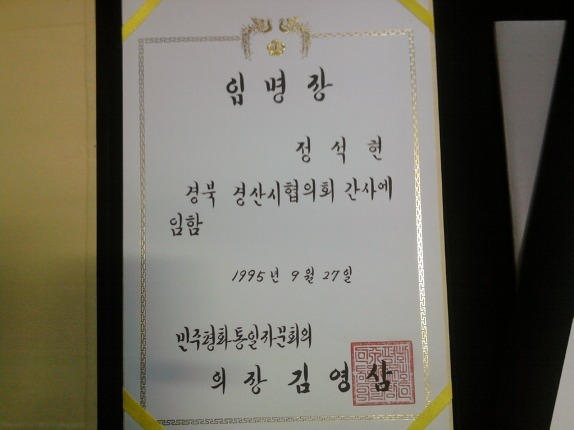 임명장
정석현
경북 경산시협의회 간사에
임함
1995년 9월 27일
민주평화통일자문회의
의장 김영삼